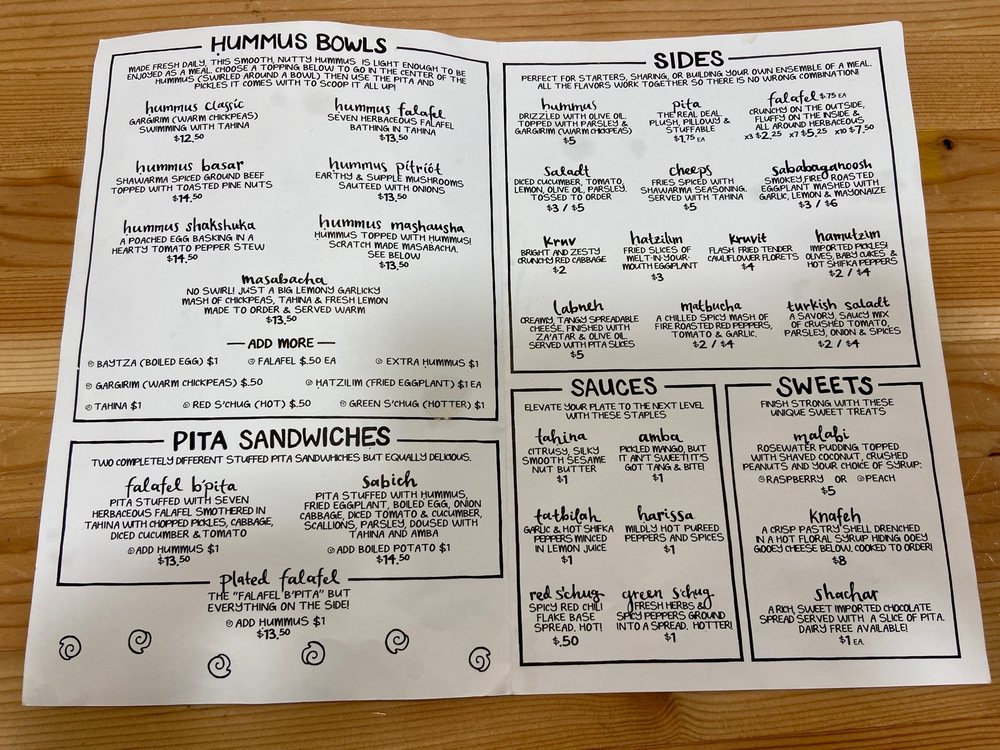 HUMMUS BOWLS
MADE FRESH DAILY, THIS SMOOTH, NUTTY HUMMUS IS LIGHT ENOUGH TO BE
ENJOYED AS A MEAL. CHOOSE A TOPPING BELOW TO GO IN THE CENTER OF THE
HUMMUS (SWIRLED AROUND A BOWL) THEN USE THE PITA AND
PICKLES IT COMES WITH TO SCOOP IT ALL UP!
hummus classic
GARGIRIM (WARM CHICKPEAS)
SWIMMING WITH TAHINA
$12.50
hummus falafel
SEVEN HERBACEOUS FALAFEL
BATHING IN TAHINA
$13.50
hummus basar
SHAWARMA SPICED GROUND BEEF
TOPPED WITH TOASTED PINE NUTS
$14.50
hummus pitriot
EARTHY & SUPPLE MUSHROOMS
SAUTEED WITH ONIONS
$13.50
hummus shakshuka
A POACHED EGG BASKING IN A
HEARTY TOMATO PEPPER STEW
$14.50
hummus mashausha
HUMMUS TOPPED WITH HUMMUS!
SCRATCH MADE MASABACHA.
SEE BELOW
$13.50
masabacha
NO SWIRL! JUST A BIG LEMONY GARLICKY
MASH OF CHICKPEAS, TAHINA & FRESH LEMON
MADE TO ORDER & SERVED WARM
$13.50
ADD MORE
BAYTZA (BOILED EGG) $1
FALAFEL $.50 EA
EXTRA HUMMUS $1
GARGIRIM (WARM CHICKPEAS) $.50
HATZILIM (FRIED EGGPLANT) $1 EA
TAHINA $1
RED S'CHUG (HOT) $.50
GREEN S'CHUG (HOTTER) $1
PITA SANDWICHES
TWO COMPLETELY DIFFERENT STUFFED PITA SANDWHICHES BUT EQUALLY DELICIOUS.
falafel b'pita
PITA STUFFED WITH SEVEN
HERBACEOUS FALAFEL SMOTHERED IN
TAHINA WITH CHOPPED PICKLES, CABBAGE,
DICED CUCUMBER & TOMATO
ADD HUMMUS $1
$13.50
sabich
PITA STUFFED WITH HUMMUS,
FRIED EGGPLANT, BOILED EGG, ONION
CABBAGE, DICED TOMATO & CUCUMBER,
SCALLIONS, PARSLEY, DOUSED WITH
TAHINA AND AMBA
ADD BOILED POTATO $1
$14.50
plated falafel
THE "FALAFEL B'PITA" BUT
EVERYTHING ON THE SIDE!
ADD HUMMUS $1
$13.50
SIDES
PERFECT FOR STARTERS, SHARING, OR BUILDING YOUR OWN ENSEMBLE OF A MEAL.
ALL THE FLAVORS WORK TOGETHER SO THERE IS NO WRONG COMBINATION!
hummus
DRIZZLED WITH OLIVE OIL.
TOPPED WITH PARSLEY &
GARGIRIM (WARM CHICKPEAS)
$5
pita
THE REAL DEAL.
PLUSH, PILLOWY &
STUFFABLE
$1.75 EA
falafel $.75 EA
CRUNCHY ON THE OUTSIDE,
FLUFFY ON THE INSIDE &
ALL AROUND HERBACEOUS
x3 $2.25 x7 $5.25 x10 $7.50
saladt
DICED CUCUMBER, TOMATO,
LEMON, OLIVE OIL, PARSLEY.
TOSSED TO ORDER
$3 / $5
cheeps
FRIES SPICED WITH
SHAWARMA SEASONING.
SERVED WITH TAHINA
$5
sababaganoosh
SMOKEY, FIRE ROASTED
EGGPLANT MASHED WITH
GARLIC, LEMON & MAYONAIZE
$3 / $6
kruv
BRIGHT AND ZESTY
CRUNCHY RED CABBAGE
$2
hatzilim
FRIED SLICES OF
MELT-IN-YOUR-
MOUTH EGGPLANT
$3
kruvit
FLASH FRIED TENDER
CAULIFLOWER FLORETS
$4
hamutzim
IMPORTED PICKLES!
OLIVES, BABY CUKES &
HOT SHIFKA PEPPERS
$2 / $4
labneh
CREAMY, TANGY SPREADABLE
CHEESE, FINISHED WITH
ZA'ATAR & OLIVE OIL.
SERVED WITH PITA SLICES
$5
matbucha
A CHILLED SPICY MASH OF
FIRE ROASTED RED PEPPERS,
TOMATO & GARLIC.
$2 / $4
turkish saladt
A SAVORY, SAUCY MIX
OF CRUSHED TOMATO,
PARSLEY, ONION & SPICES
$2 / $4
SAUCES
ELEVATE YOUR PLATE TO THE NEXT LEVEL
WITH THESE STAPLES
tahina
CITRUSY, SILKY
SMOOTH SESAME
NUT BUTTER
$1
amba
PICKLED MANGO, BUT
IT AIN'T SWEET! IT'S
GOT TANG & BITE!
$1
tatbilah
GARLIC & HOT SHIFKA
PEPPERS MINCED
IN LEMON JUICE
$1
harissa
MILDLY HOT PUREED
PEPPERS AND SPICES
$1
red s'chug
SPICY RED CHILI
FLAKE BASE
SPREAD. HOT!
$.50
green s'chug
FRESH HERBS &
SPICY PEPPERS GROUND
INTO A SPREAD. HOTTER!
$1
SWEETS
FINISH STRONG WITH THESE
UNIQUE SWEET TREATS
malabi
ROSEWATER PUDDING TOPPED
WITH SHAVED COCONUT, CRUSHED
PEANUTS AND YOUR CHOICE OF SYRUP:
RASPBERRY OR PEACH
$5
knafeh
A CRISP PASTRY SHELL DRENCHED
IN A HOT FLORAL SYRUP HIDING OOEY
GOOEY CHEESE BELOW. COOKED TO ORDER!
$8
shachar
A RICH, SWEET IMPORTED CHOCOLATE
SPREAD SERVED WITH A SLICE OF PITA.
DAIRY FREE AVAILABLE!
$1 EA.